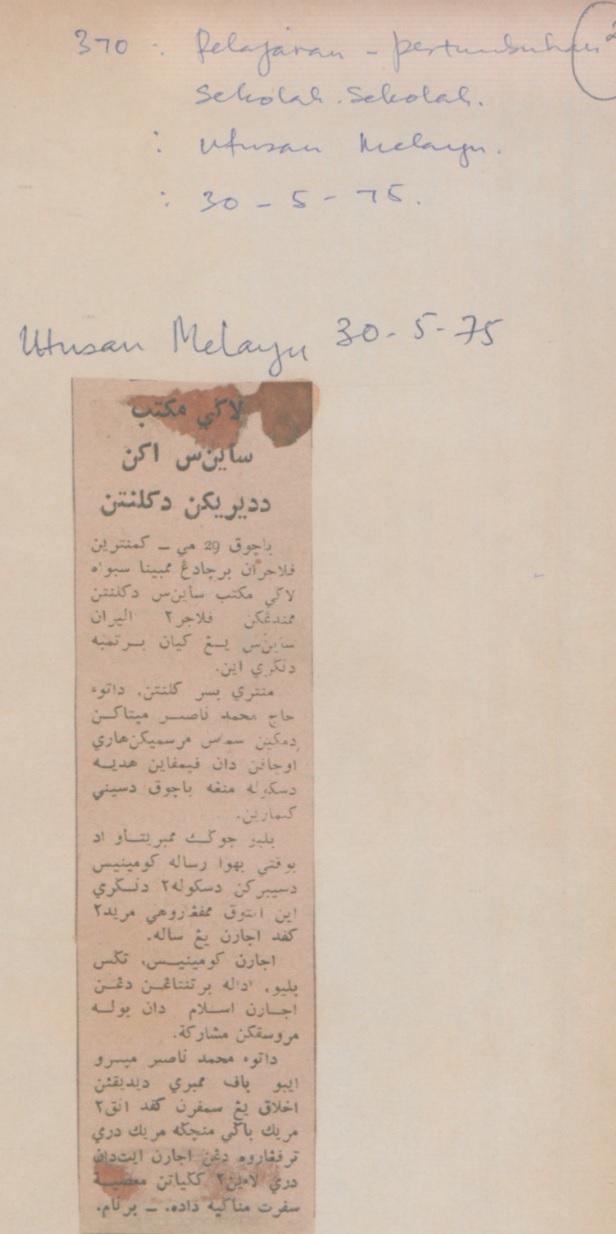 370 : Pelajaran - pertumbuhan
Sekolah-Sekolah.
: Utusan Melayu.
: 30 - 5 - 75.
Utusan Melayu 30-5-75
لاݢي مکتب
ساينس اکن
ددیریکن دکلنتن
باچوق 29 مي ــ کمنترين
ڤلاجرن برچادڠ ممبينا سبواه
لاݢي مکتب ساينس دکلنتن
ممندڠکن ڤلاجر٢ اليران
ساينس يڠ کيان برتمبه
دنݢري اين.
منتري بسر کلنتن، داتوء
حاج محمد ناصر ميتاکن
دمکين سماس مرسميکن هاري
اوچاڤن دان ڤيمڤاين هديه
دسکوله منڠه باچوق دسيني
کلمارين.
بليو جوݢ ممبريتاو اد
بوقتي بهوا رساله کومينيس
دسيبرکن دسکوله٢ دنݢري
اين انتوق ممڤڠروهي مريد٢
کڤد اجارن يڠ ساله.
اجارن کومينيس، تݢس
بليو، اداله برتنتاڠن دڠن
اجارن اسلام دان بوله
مروسقکن مشارکة.
داتوء محمد ناصر ميرو
ايبو باڤ ممبري ديديقن
اخلاق يڠ سمڤرن کڤد انق٢
مريک باݢي منچݢه مريک دري
ترڤڠاروه دڠن اجارن ايت دان
دري لاءين٢ کݢياتن معصية
سڤرت مناݢيه داده. ــ برنام.